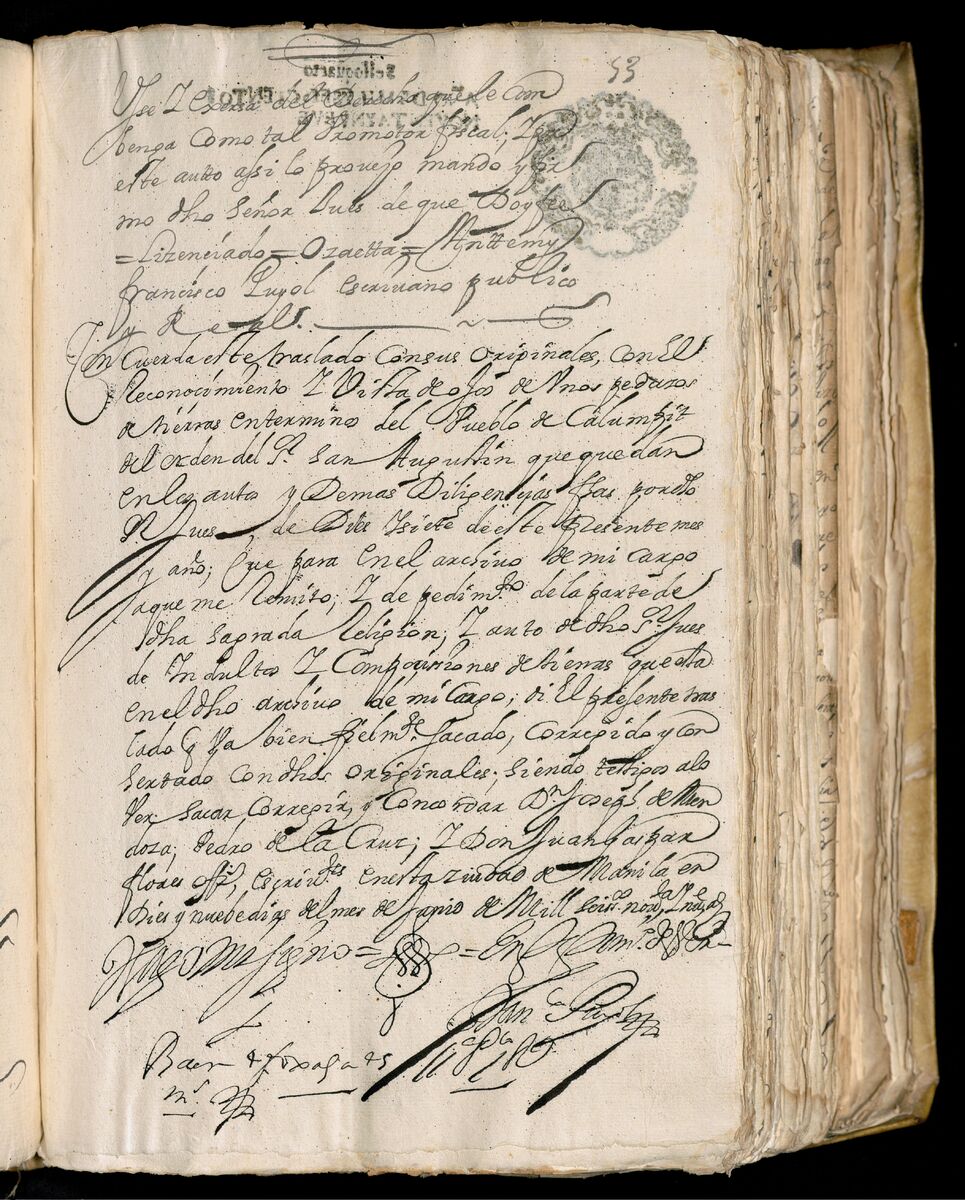 53
Vse I Exersa del Derecho que le Con
benga Como tal Promotor fiscal; I por
este autto assi lo proveyo mando y fir
mo dho Señor Jues de que Doy fee
= Lizenciado = Ozaetta = Anttemy
francisco Puyol escrivano publico
y Real
Concuerda este traslado Consus originales, con El
Reconocimiento I Vista de ojos de Vnos pedazos
de tierras entermino del Pueblo de Calumpit
del orden del Sr. San Augustin que quedan
en los autos y Demas Diligencias fhas por dho
Sr Jues de Dies Isiete de este presente mes
y año; Que para en el archivo de mi cargo
aque me Remito; I de pedimto de la parte de
dha Sagrada Religion; I auto de dho Sr. Jues
de Indultos I Composissiones de tierras que esta
en el dho archivo de mi Cargo; di El presente tras
lado q Va bien fielmte sacado, corregido y con
sertado Con dhos originales; siendo testigos alo
Ver sacar, corregir, y Concordar Dn Joseph de Men
doza, Pedro de la Cruz; I Don Juan Gaspar
flores escrivtes en esta ziudad de Manila en
Dies y nuebe dias del mes de Junio de Mill Seissos nobta
Hago mi signo = = En
Franco Puyol